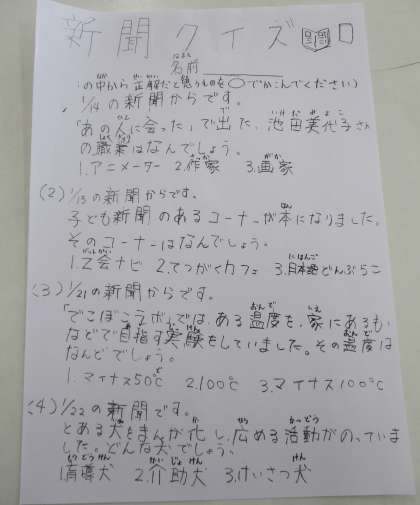 新聞クイズ
名前
の中から正解だと思うものを○でかこんでください)
1/14の新聞からです。
「あの人に会った」で出た、池田美代子さん
の職業はなんでしょう。
1.アニメーター 2.作家 3.画家
(2) 1/15の新聞からです。
子ども新聞のあるコーナーが本になりました。
そのコーナーはなんでしょう。
1.Z会ナビ 2.てつがくカフェ 3.日本語どんぶらこ
(3) 1/21の新聞からです。
「でこぼこえボ」では、ある温度を、家にあるも
などで目指す実験をしていました。その温度は
なんどでしょう。
1.マイナス50℃ 2.100℃ 3.マイナス100℃
(4) 1/22の新聞です。
とある犬をまんが化し、広める活動がのっていま
した。どんな犬でしょう。
1.盲導犬 2.介助犬 3.けいさつ犬